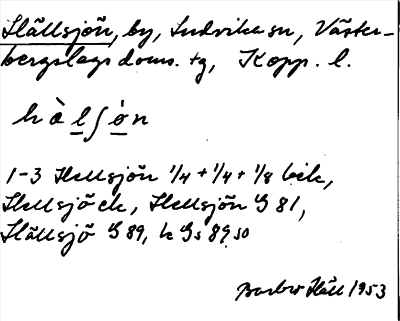 Hällsjön, by, Ludvika sn, Väster-
bergslags doms. tg, Kopp. l.
hàlʃȯn
1-3 Hellsjön 1/4 + 1/4 + 1/8
Hellsjö ek, Hellsjön G 81,
Hällsjö G 89, k Gs 89 50
Barbro Häll 1953